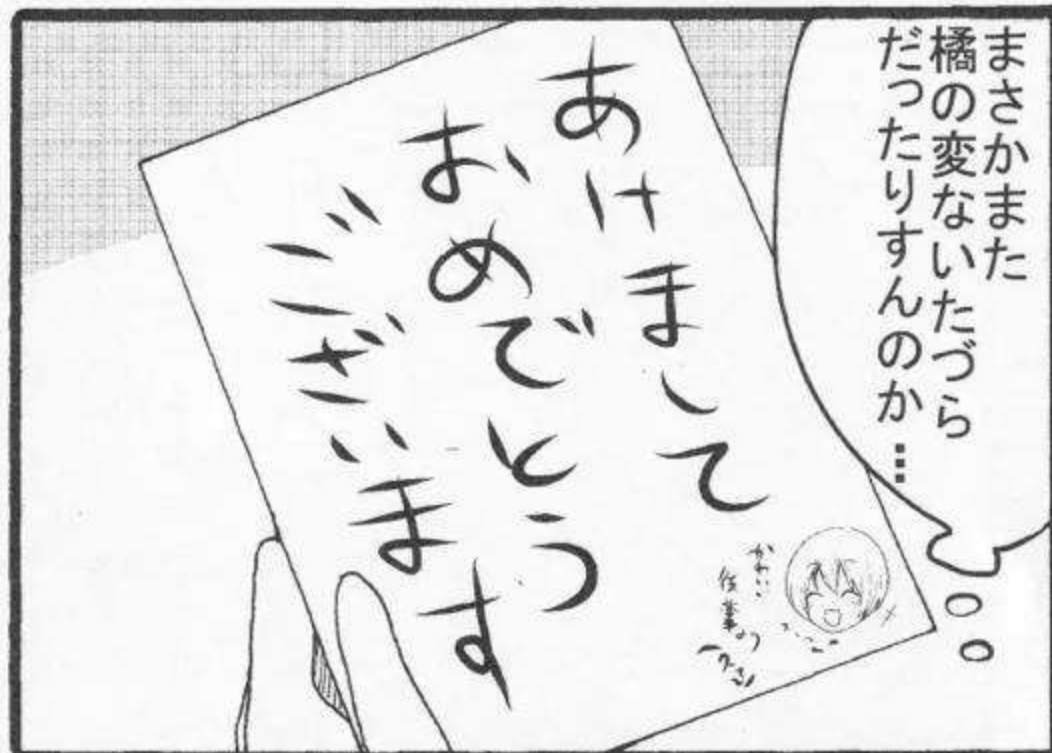 まさかまた
橘の変ないたづら
だったりすんのか…
あけまして
おめでとう
ございます
かわいい
後輩より